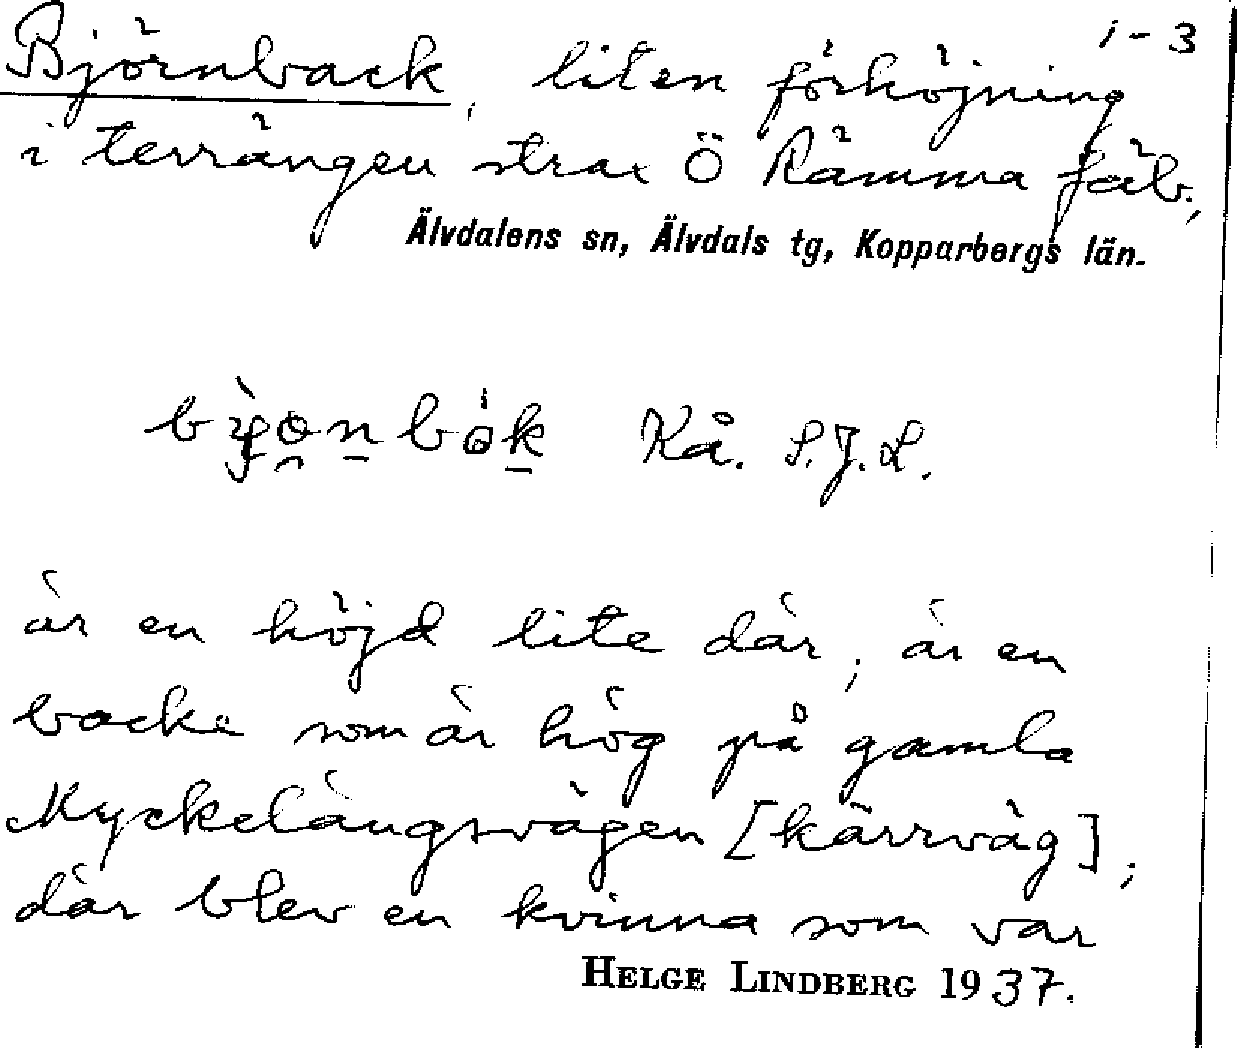 1-3
Björnback, liten förhöjning
i terrängen strax Ö Rämma fäb.,
Älvdalens sn, Älvdals tg, Kopparbergs län.
Kå. S.J.L.
är en höjd lite där, är en
backe som är hög på gamla
Myckelängsvägen [kärrväg];
där blev en kvinna som var
HELGE LINDBERG 1937.